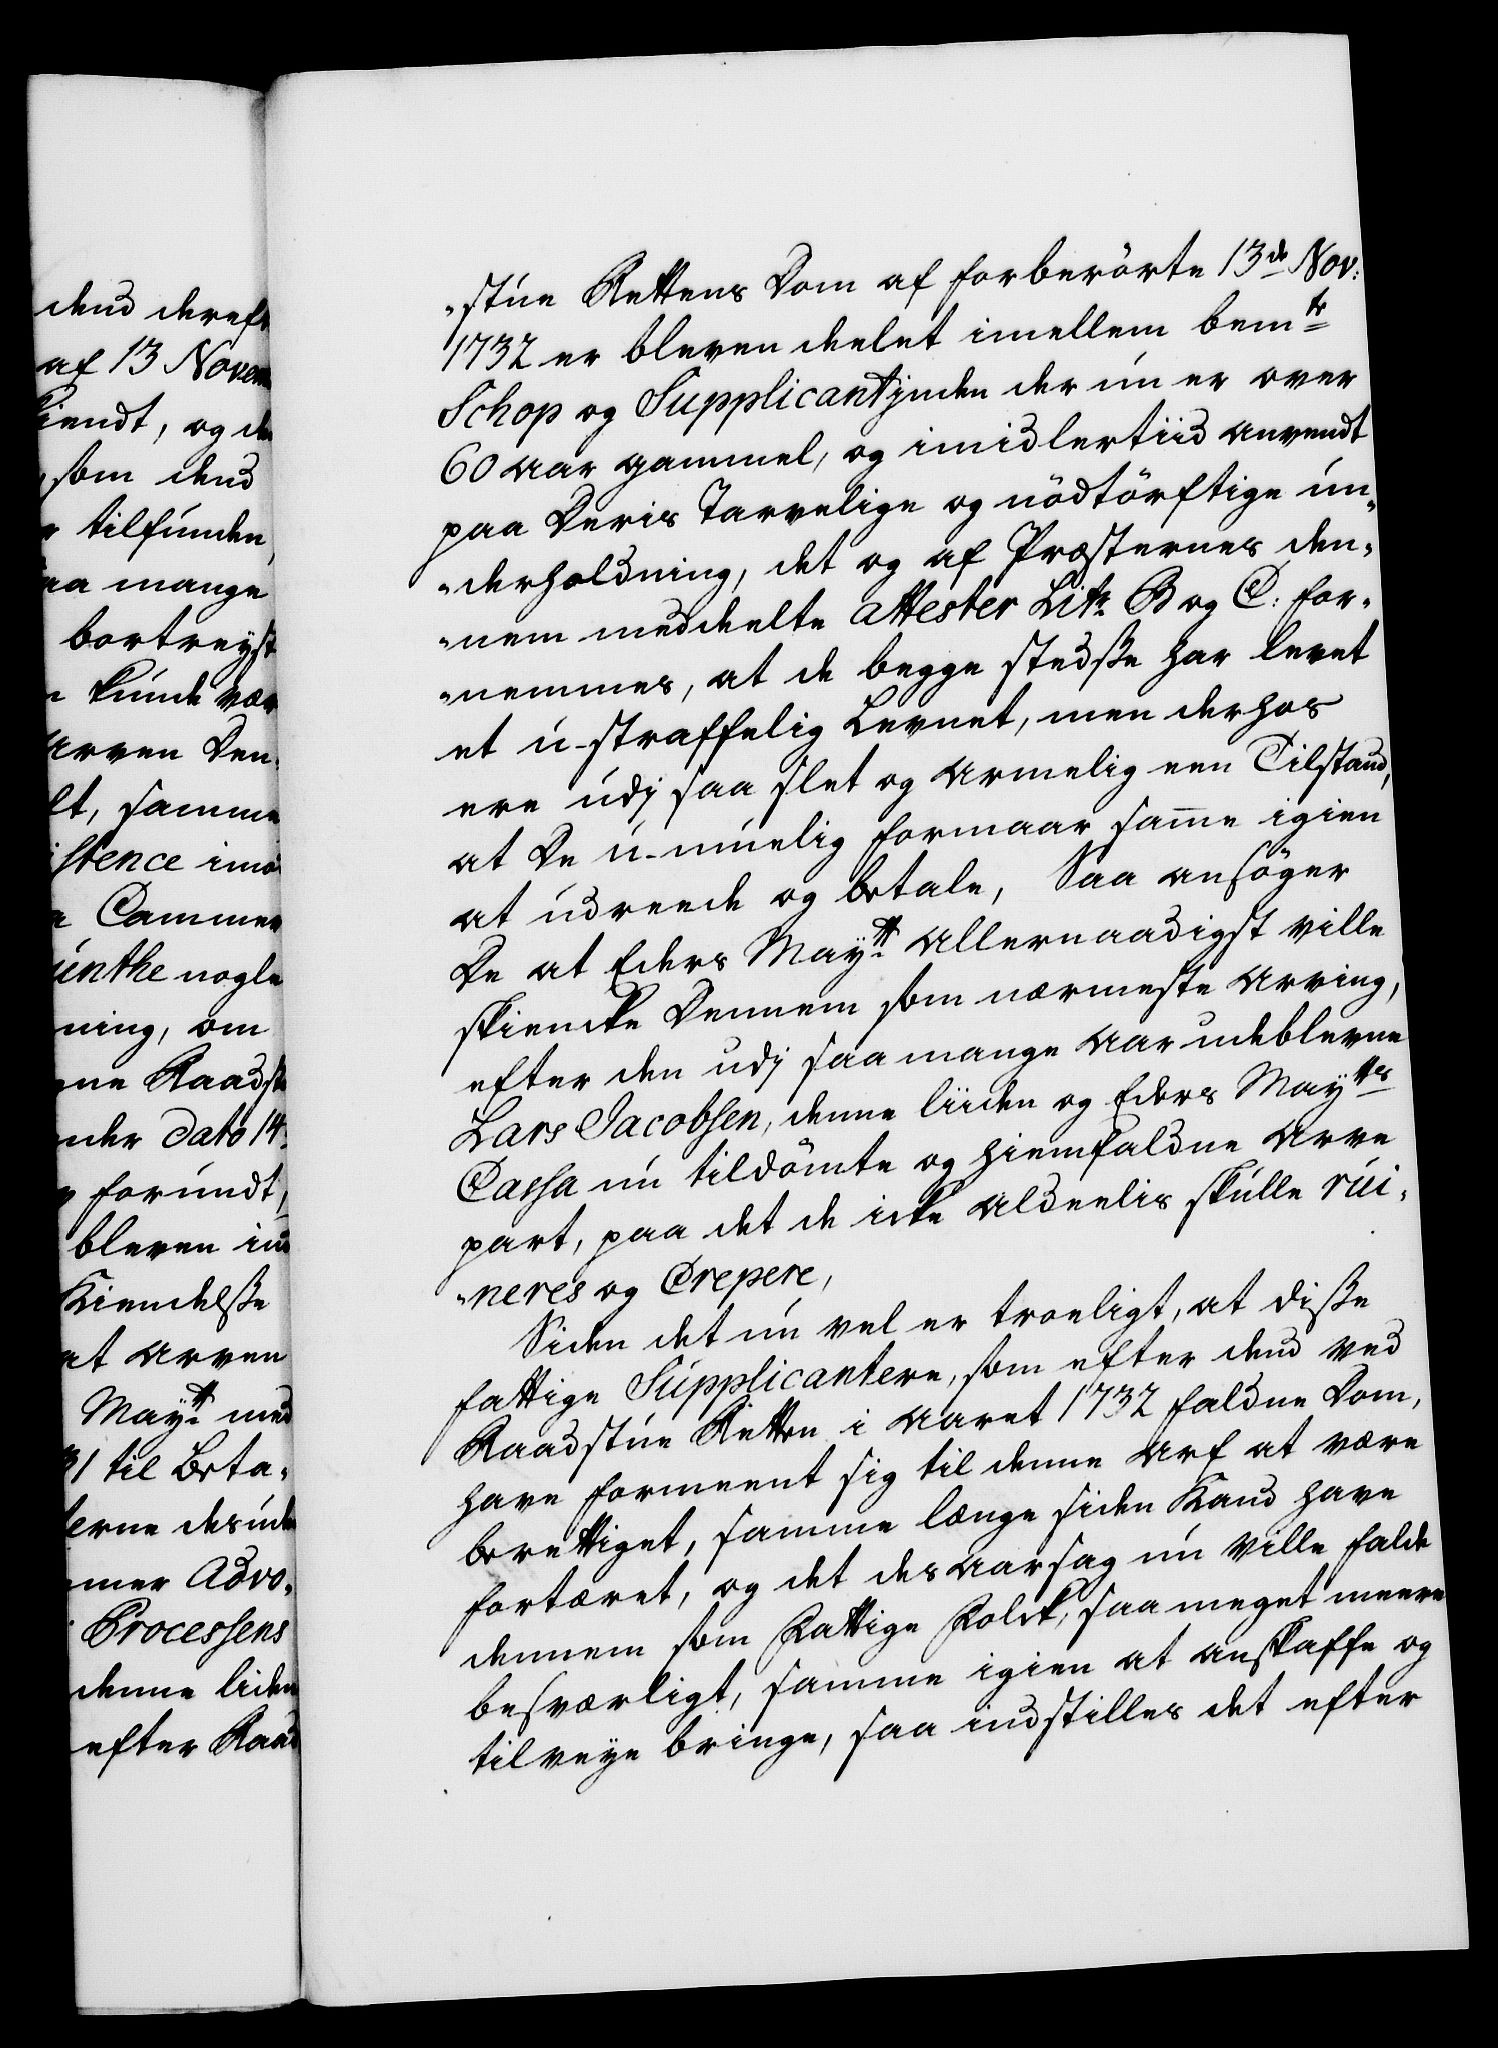 dend dereft
af 13 Novem
kiendt, og de
som dend
r tilfunden,
aa mange
bortreyst
n kunde vær
Arven Den-
lt, samme
istence imo
n Cammer
ünthe nogle
ning, om
ne Raadst
nder Dato 14.
v forundt,
bleven ind
Kiendelsse
at Arven
Maytt. med
31 til Beta-
terne desud
mer Advo-
Processens
denne liden
efter Raad
-stue Rettens Dom af forberörte 13de Nov:
1732 er bleven deelet imellem bemte
Schop og Supplicantjnden der nu er over
60 Aar gammel, og imidlertiid anvendt
paa Deris Tarvelige og nödtörftige un-
-derholdning, det og af Præsternes den-
-nem meddeelte attester Litr. B og C: for-
-nemmes, at de begge stedsse har levet
et u-straffelig Levnet, men derhos
ere udj saa slet og Armelig een Tilstand,
at De u-muelig formaar same igien
at udreede og betale, Saa ansöger
De at Eders Maytt. Allernaadigst ville
skiencke Dennem som nærmeste Arving,
efter den udj saa mange Aar udeblevne
Lars Jacobsen, denne liiden og Eders Maytts
Cassa nu tildömte og hiemfaldne Arve
part, paa det de icke Aldeelis skulle rui-
-neres og Crepere,
Siden det nu vel er troeligt, at disse
fattige Supplicantere, som efter dend ved
Raadstue Retten i Aaret 1732 faldne Dom,
have formeent sig til denne Arf at være
berettiget, samme længe siden Kand have
fortæret, og det des Aarsag nu ville falde
dennem som Fattige Folck, saa meget meere
besværligt, samme igien at anskaffe og
tilveye bringe, saa indstilles det efter